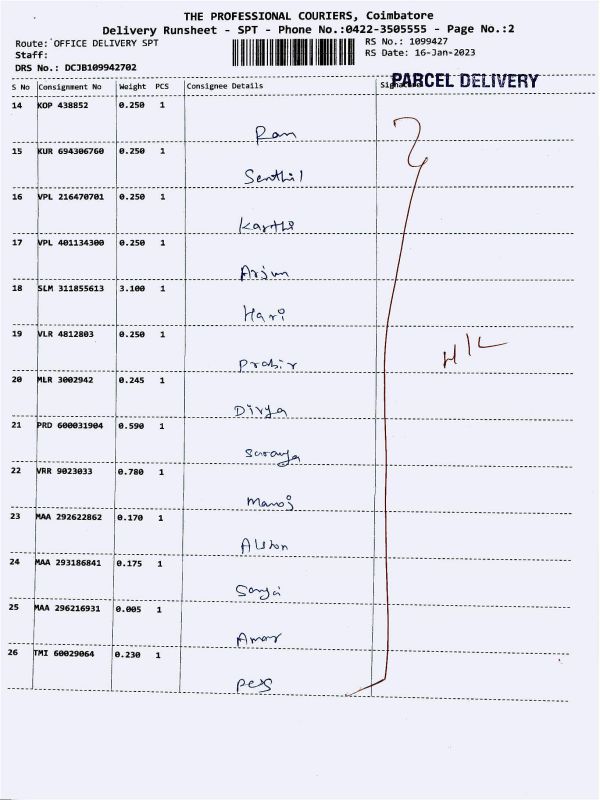 THE PROFESSIONAL COURIERS, Coimbatore
Delivery Runsheet - SPT - Phone No.:0422-3505555 - Page No.:2
Route: OFFICE DELIVERY SPT RS No.: 1099427
Staff: RS Date: 16-Jan-2023
DRS No.: DCJB109942702
PARCEL DELIVERY
S No Consignment No Weight PCS Consignee Details
14 KOP 438852 0.250 1
Ram
15 KUR 694306760 0.250 1
Senthil
16 VPL 216470701 0.250 1
Karthi
17 VPL 401134300 0.250 1
Arjun
18 SLM 311855613 3.100 1
Hari
19 VLR 4812803 0.250 1
H/L
Prabir
20 MLR 3002942 0.245 1
Divya
21 PRD 600031904 0.590 1
Saranya
22 VRR 9023033 0.780 1
Manoj
23 MAA 292622862 0.170 1
24 MAA 293186841 0.175 1
25 MAA 296216931 0.005 1
Amar
26 TMI 60029064 0.230 1